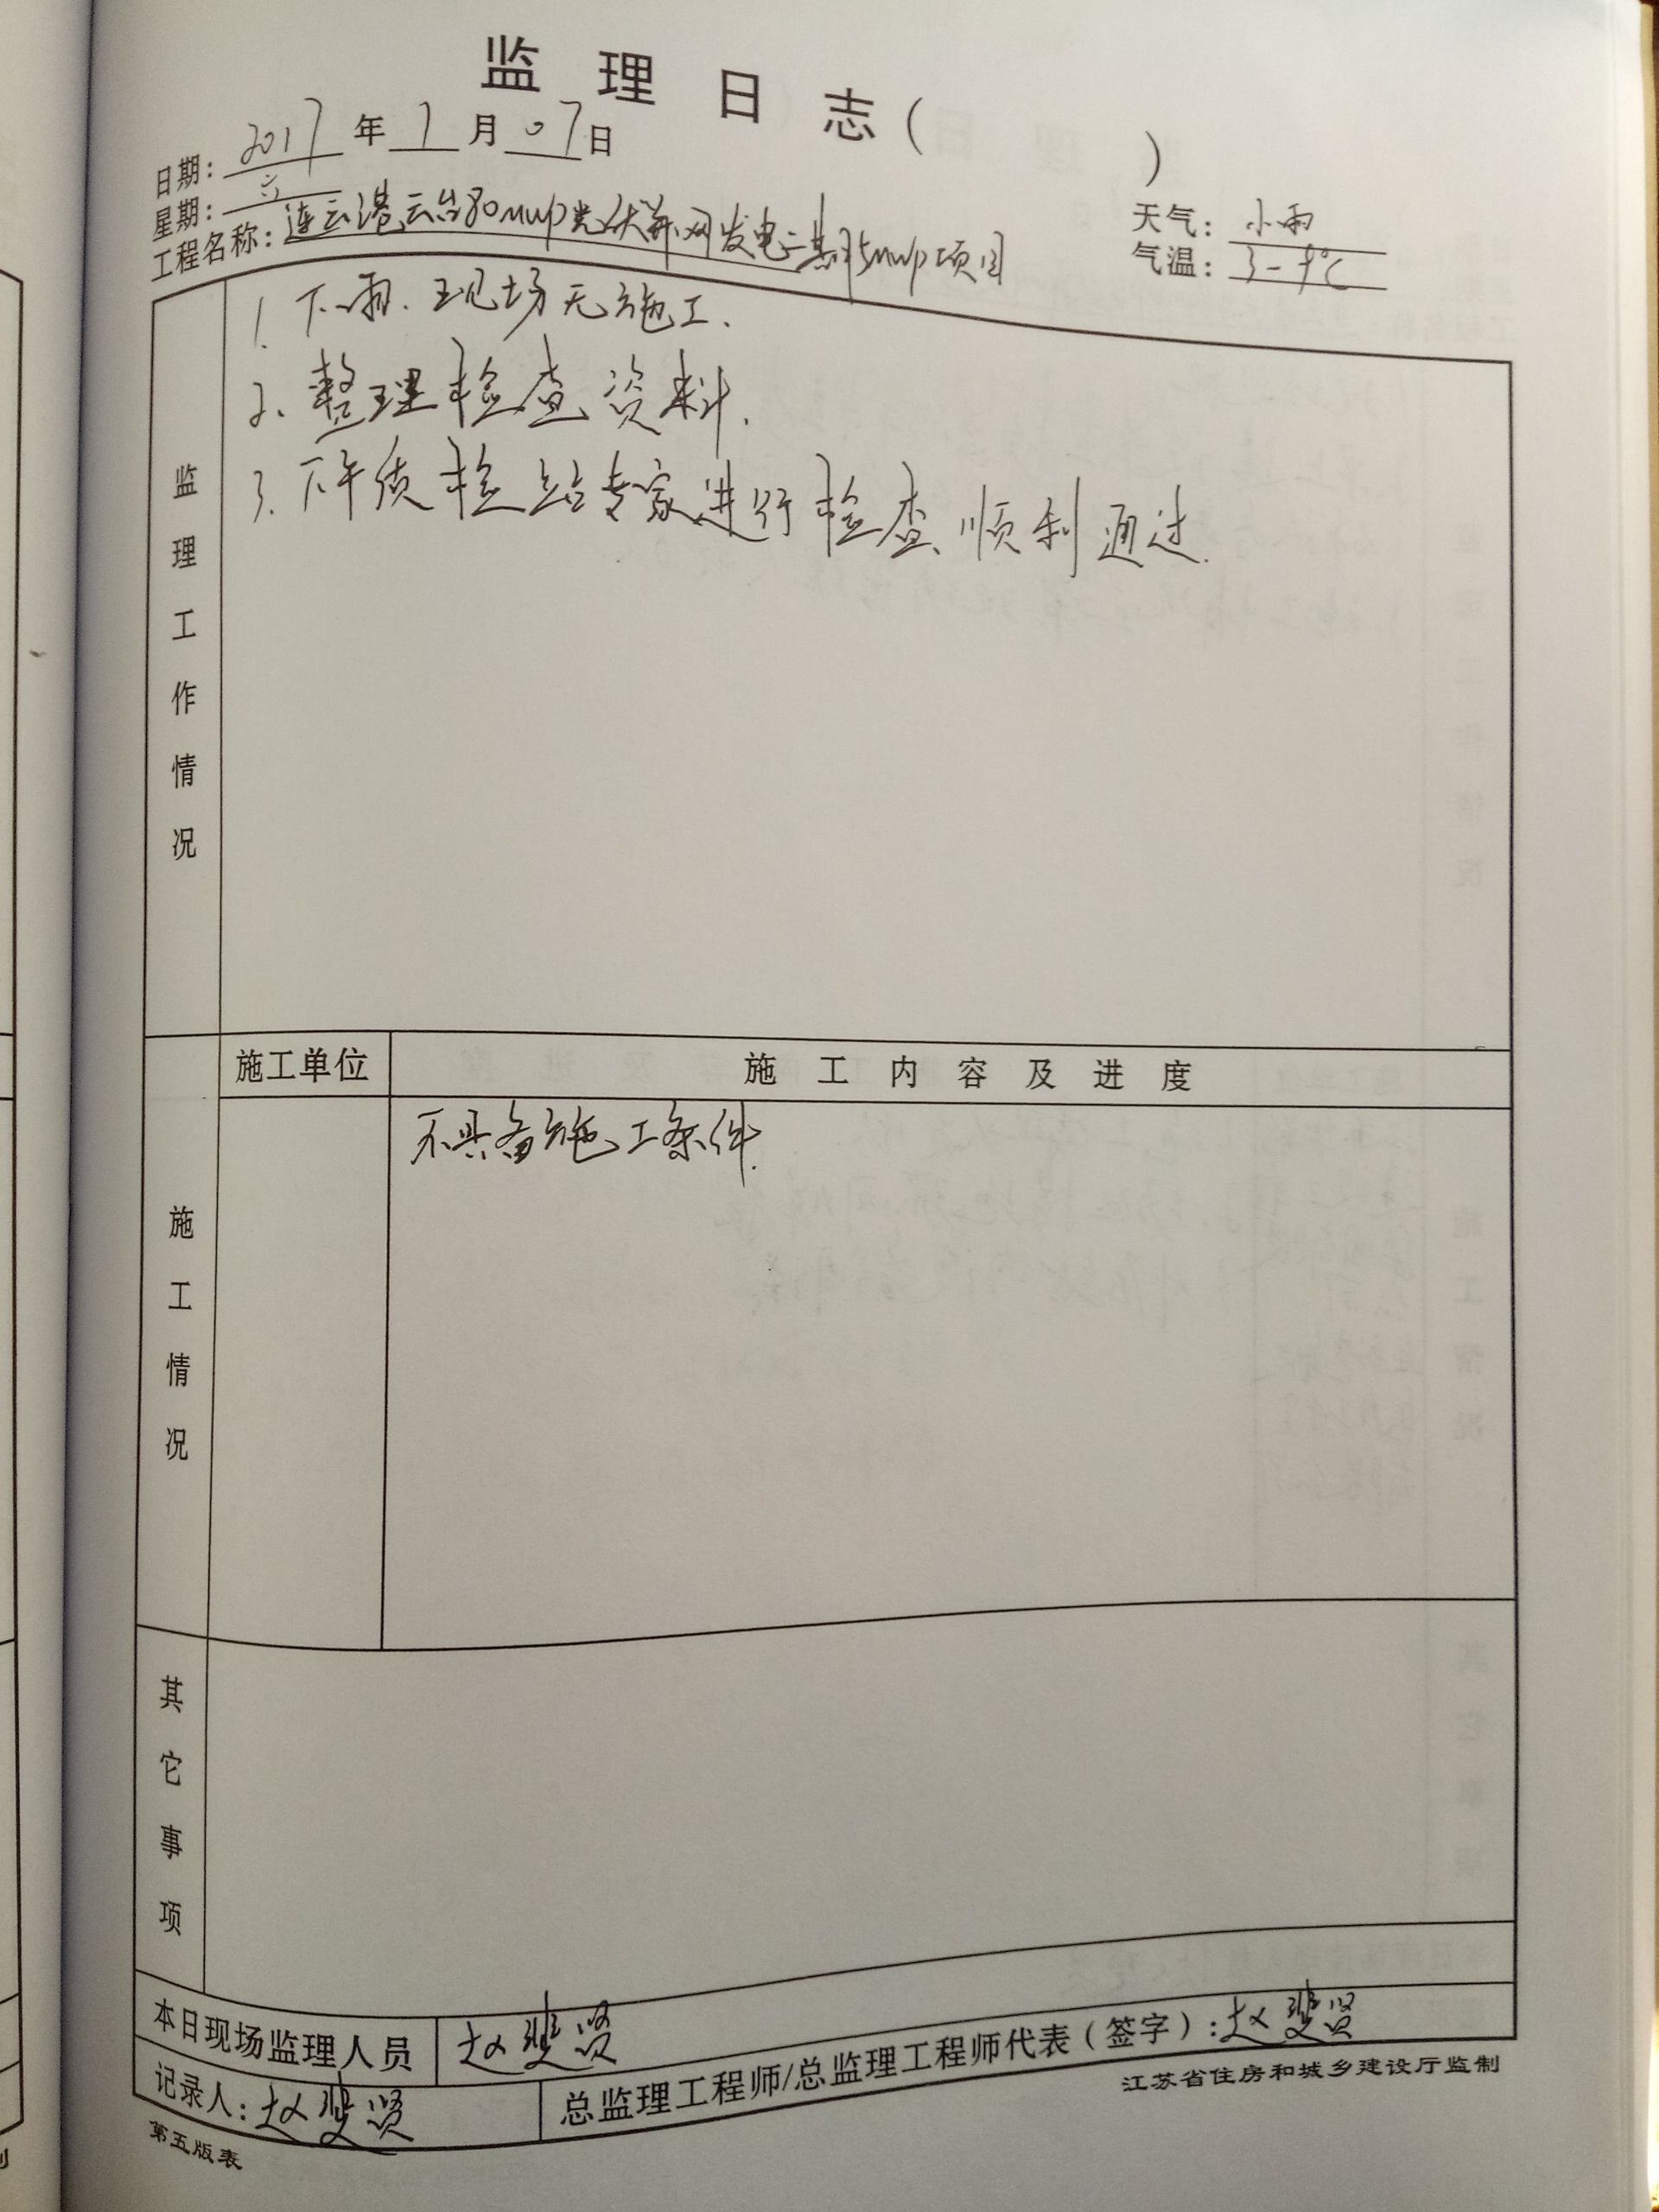 监理日志（ ）
日期：2017年1月07日
星期：六
工程名称：连云港云台80MWp光伏并网发电二期35MWp项目
天气：小雨
气温：3-9℃
监理工作情况
1. 下雨.现场无施工.
2、整理检查资料.
3. 下午质检站专家进行检查、顺利通过.
施工情况
施工单位 施工内容及进度
不具备施工条件.
其它事项
本日现场监理人员 赵 贤
记录人：赵 贤 总监理工程师/总监理工程师代表（签字）：赵 贤
第五版表 江苏省住房和城乡建设厅监制